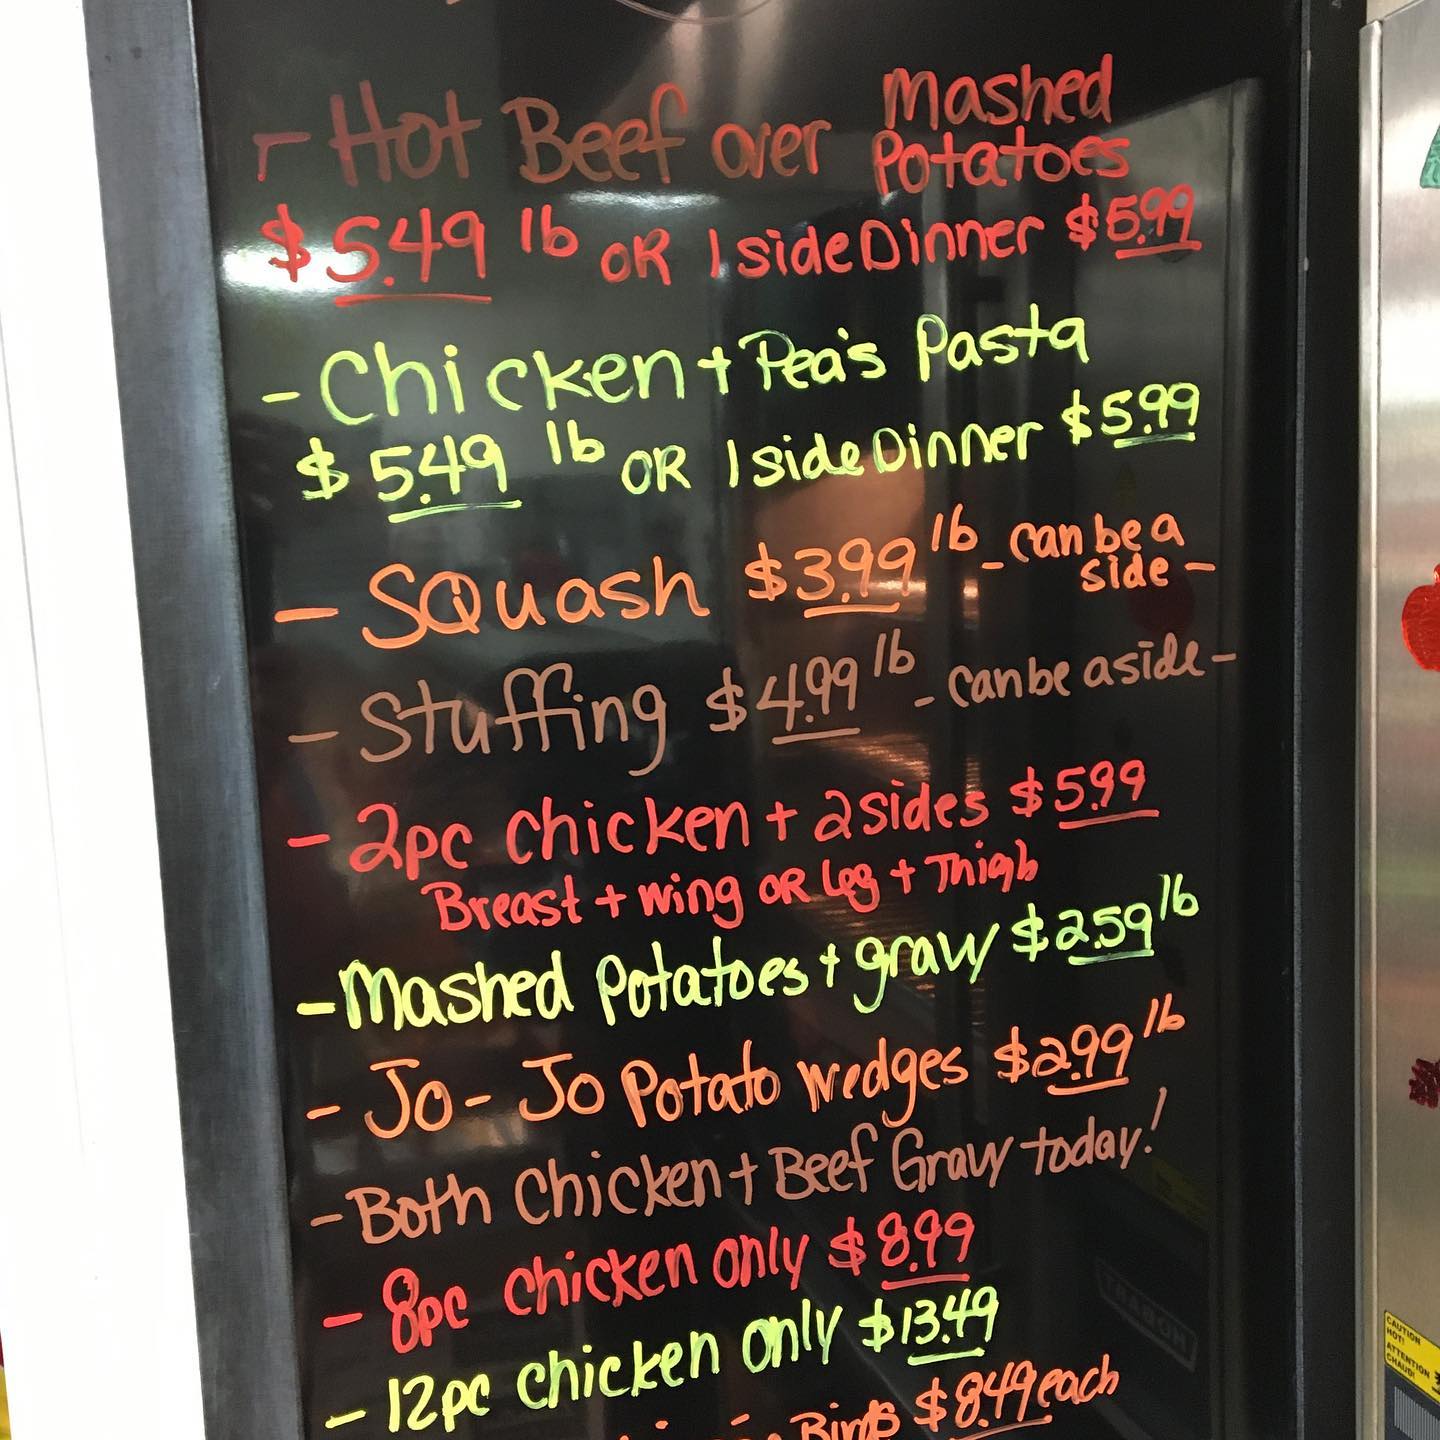 - Hot Beef over Mashed Potatoes
$5.49 lb OR 1 side Dinner $5.99
- Chicken + Pea's Pasta
$5.49 lb OR 1 side Dinner $5.99
- Squash $3.99 lb - can be a side -
- Stuffing $4.99 lb - can be a side -
- 2pc chicken + 2 sides $5.99
Breast + wing OR leg + Thigh
- Mashed Potatoes + gravy $2.59 lb
- Jo-Jo Potato wedges $2.99 lb
- Both Chicken + Beef Gravy today!
- 8pc chicken only $8.99
- 12pc chicken only $13.49
Birds $8.49 each
HOBART
CAUTION
HOT!
ATTENTION
CHAUD!